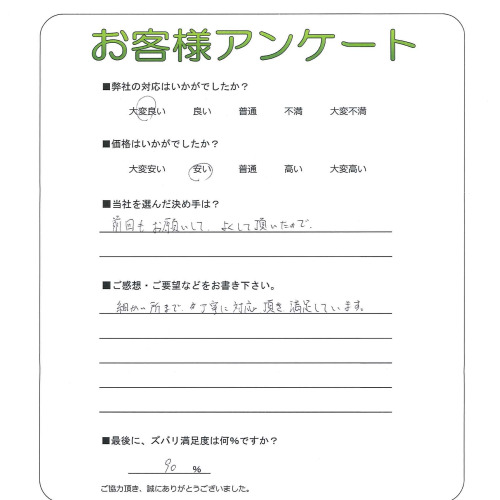 お客様アンケート
■弊社の対応はいかがでしたか？
大変良い 良い 普通 不満 大変不満
■価格はいかがでしたか？
大変安い 安い 普通 高い 大変高い
■当社を選んだ決め手は？
前回もお願いして、よくして頂いたので、
■ご感想・ご要望などをお書き下さい。
細かい所まで、丁寧に対応頂き満足しています。
■最後に、ズバリ満足度は何％ですか？
90 ％
ご協力頂き、誠にありがとうございました。